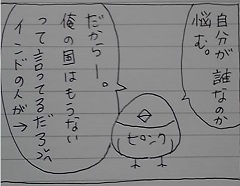 自分が誰なのか
悩む。
だからー。
俺の国はもうない
って言ってるだろ
インドの人が→
ピロンク